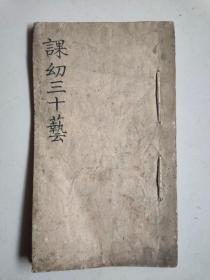 課幼三十藝